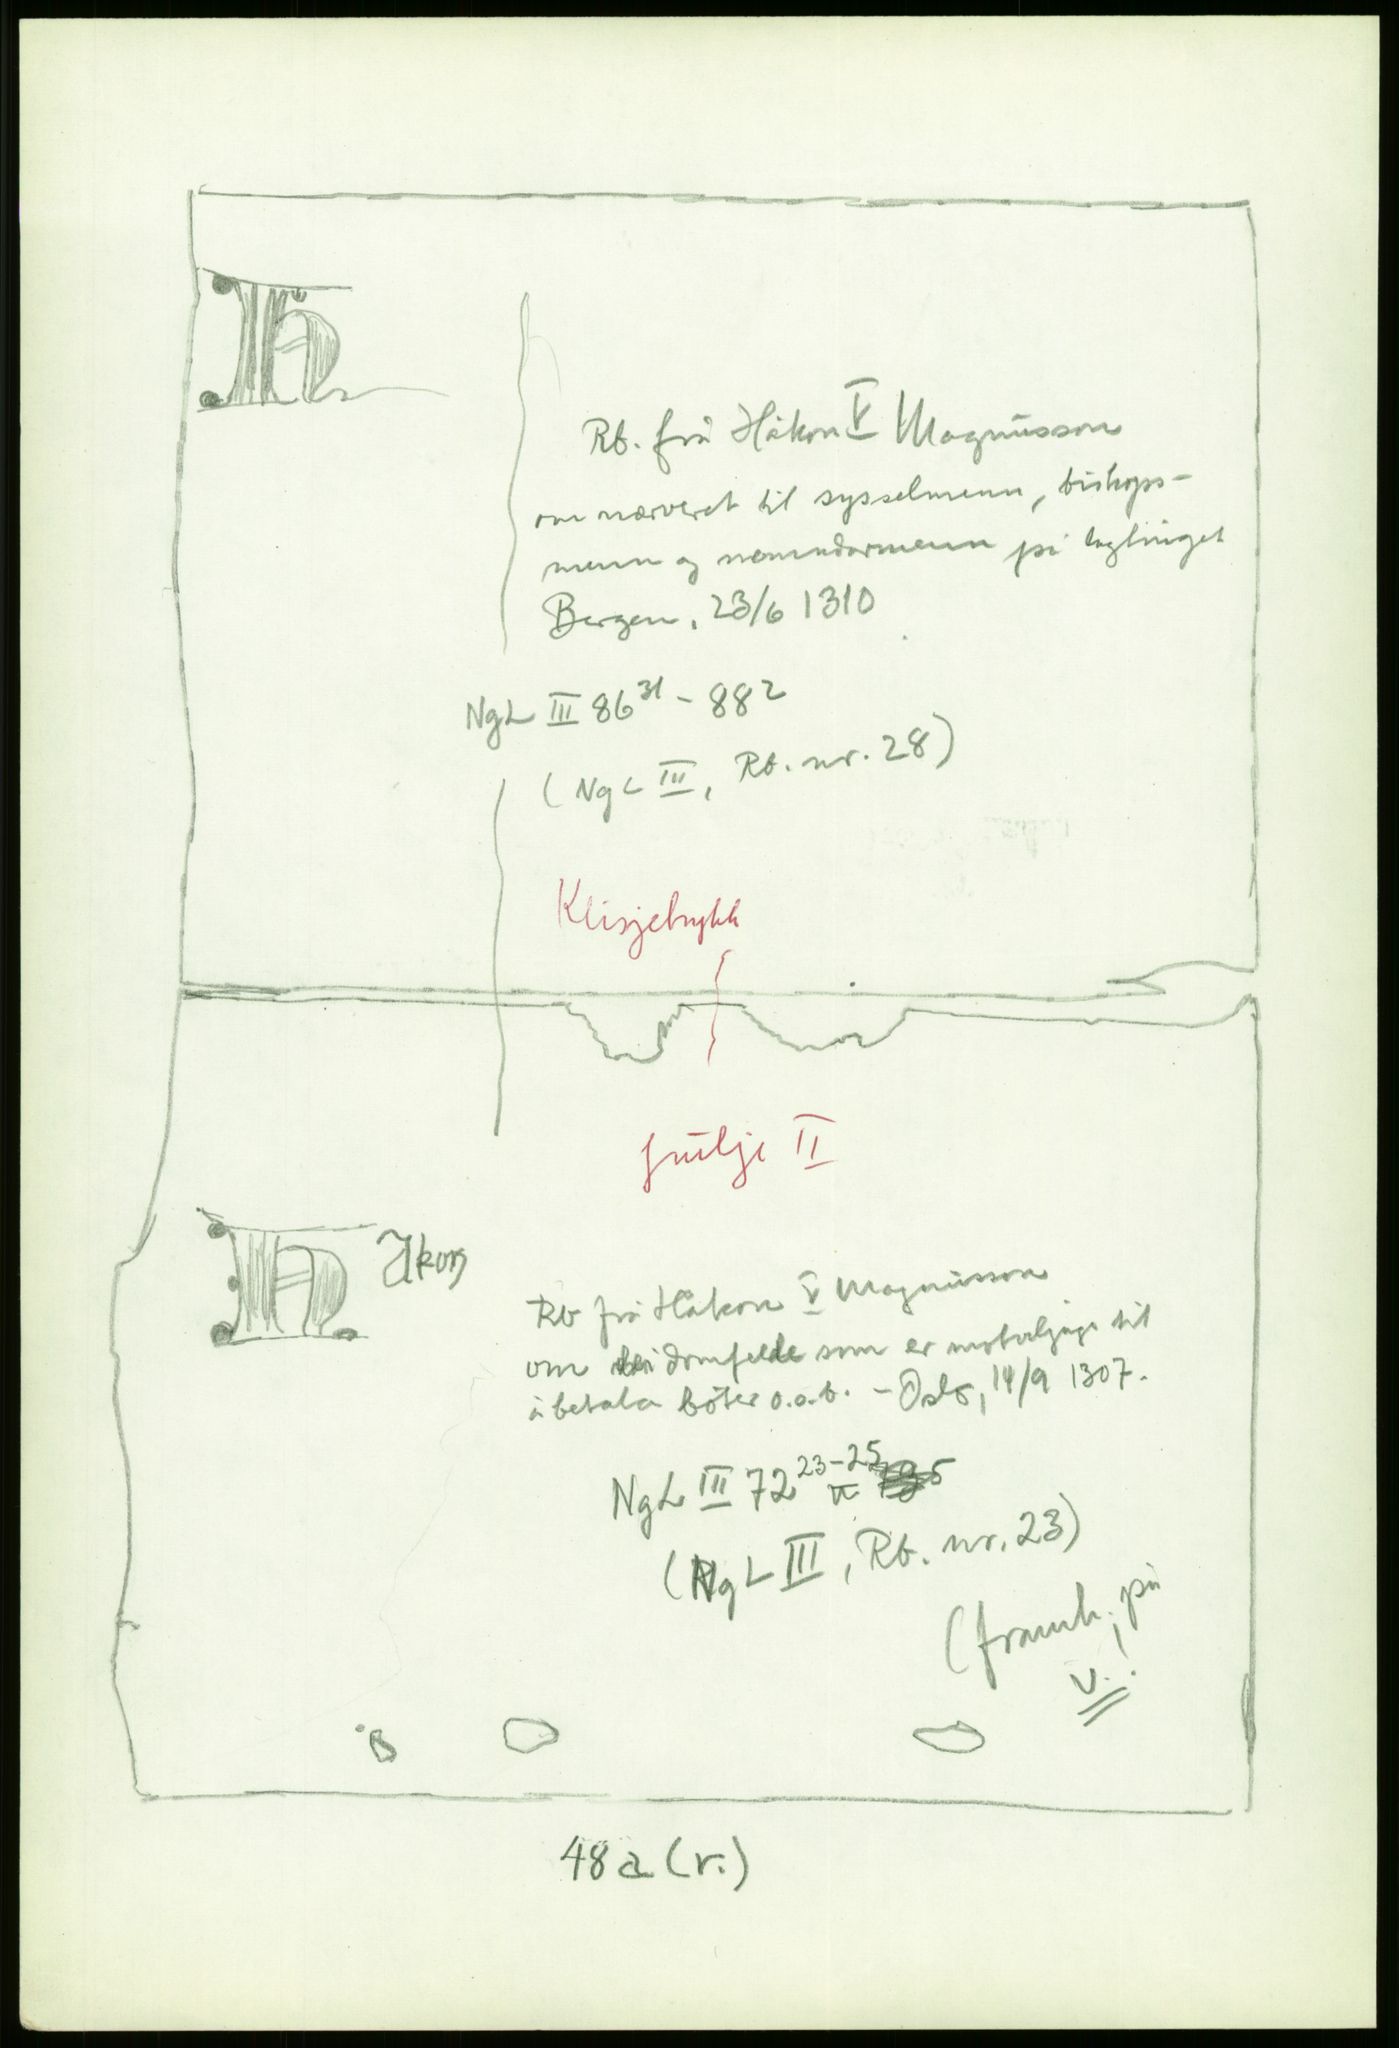 H
Rb. frå Håkon V Magnusson
om nærveret til sysselmenn, biskops-
menn og nemndarmenn på lagtinget
Bergen, 23/6 1310
NgL III 86³¹ - 88²
(NgL III, Rb. nr. 28)
Klisjetrykk
fulje II
H
Akon
Rb frå Håkon V Magnusson
om domfelde som er motviljuge til
å betala bøter o.a.b. - Oslo, 14/9 1307.
NgL III 72 23-25
(NgL III, Rb. nr. 23)
(framh. på
v.!
48 a (r.)